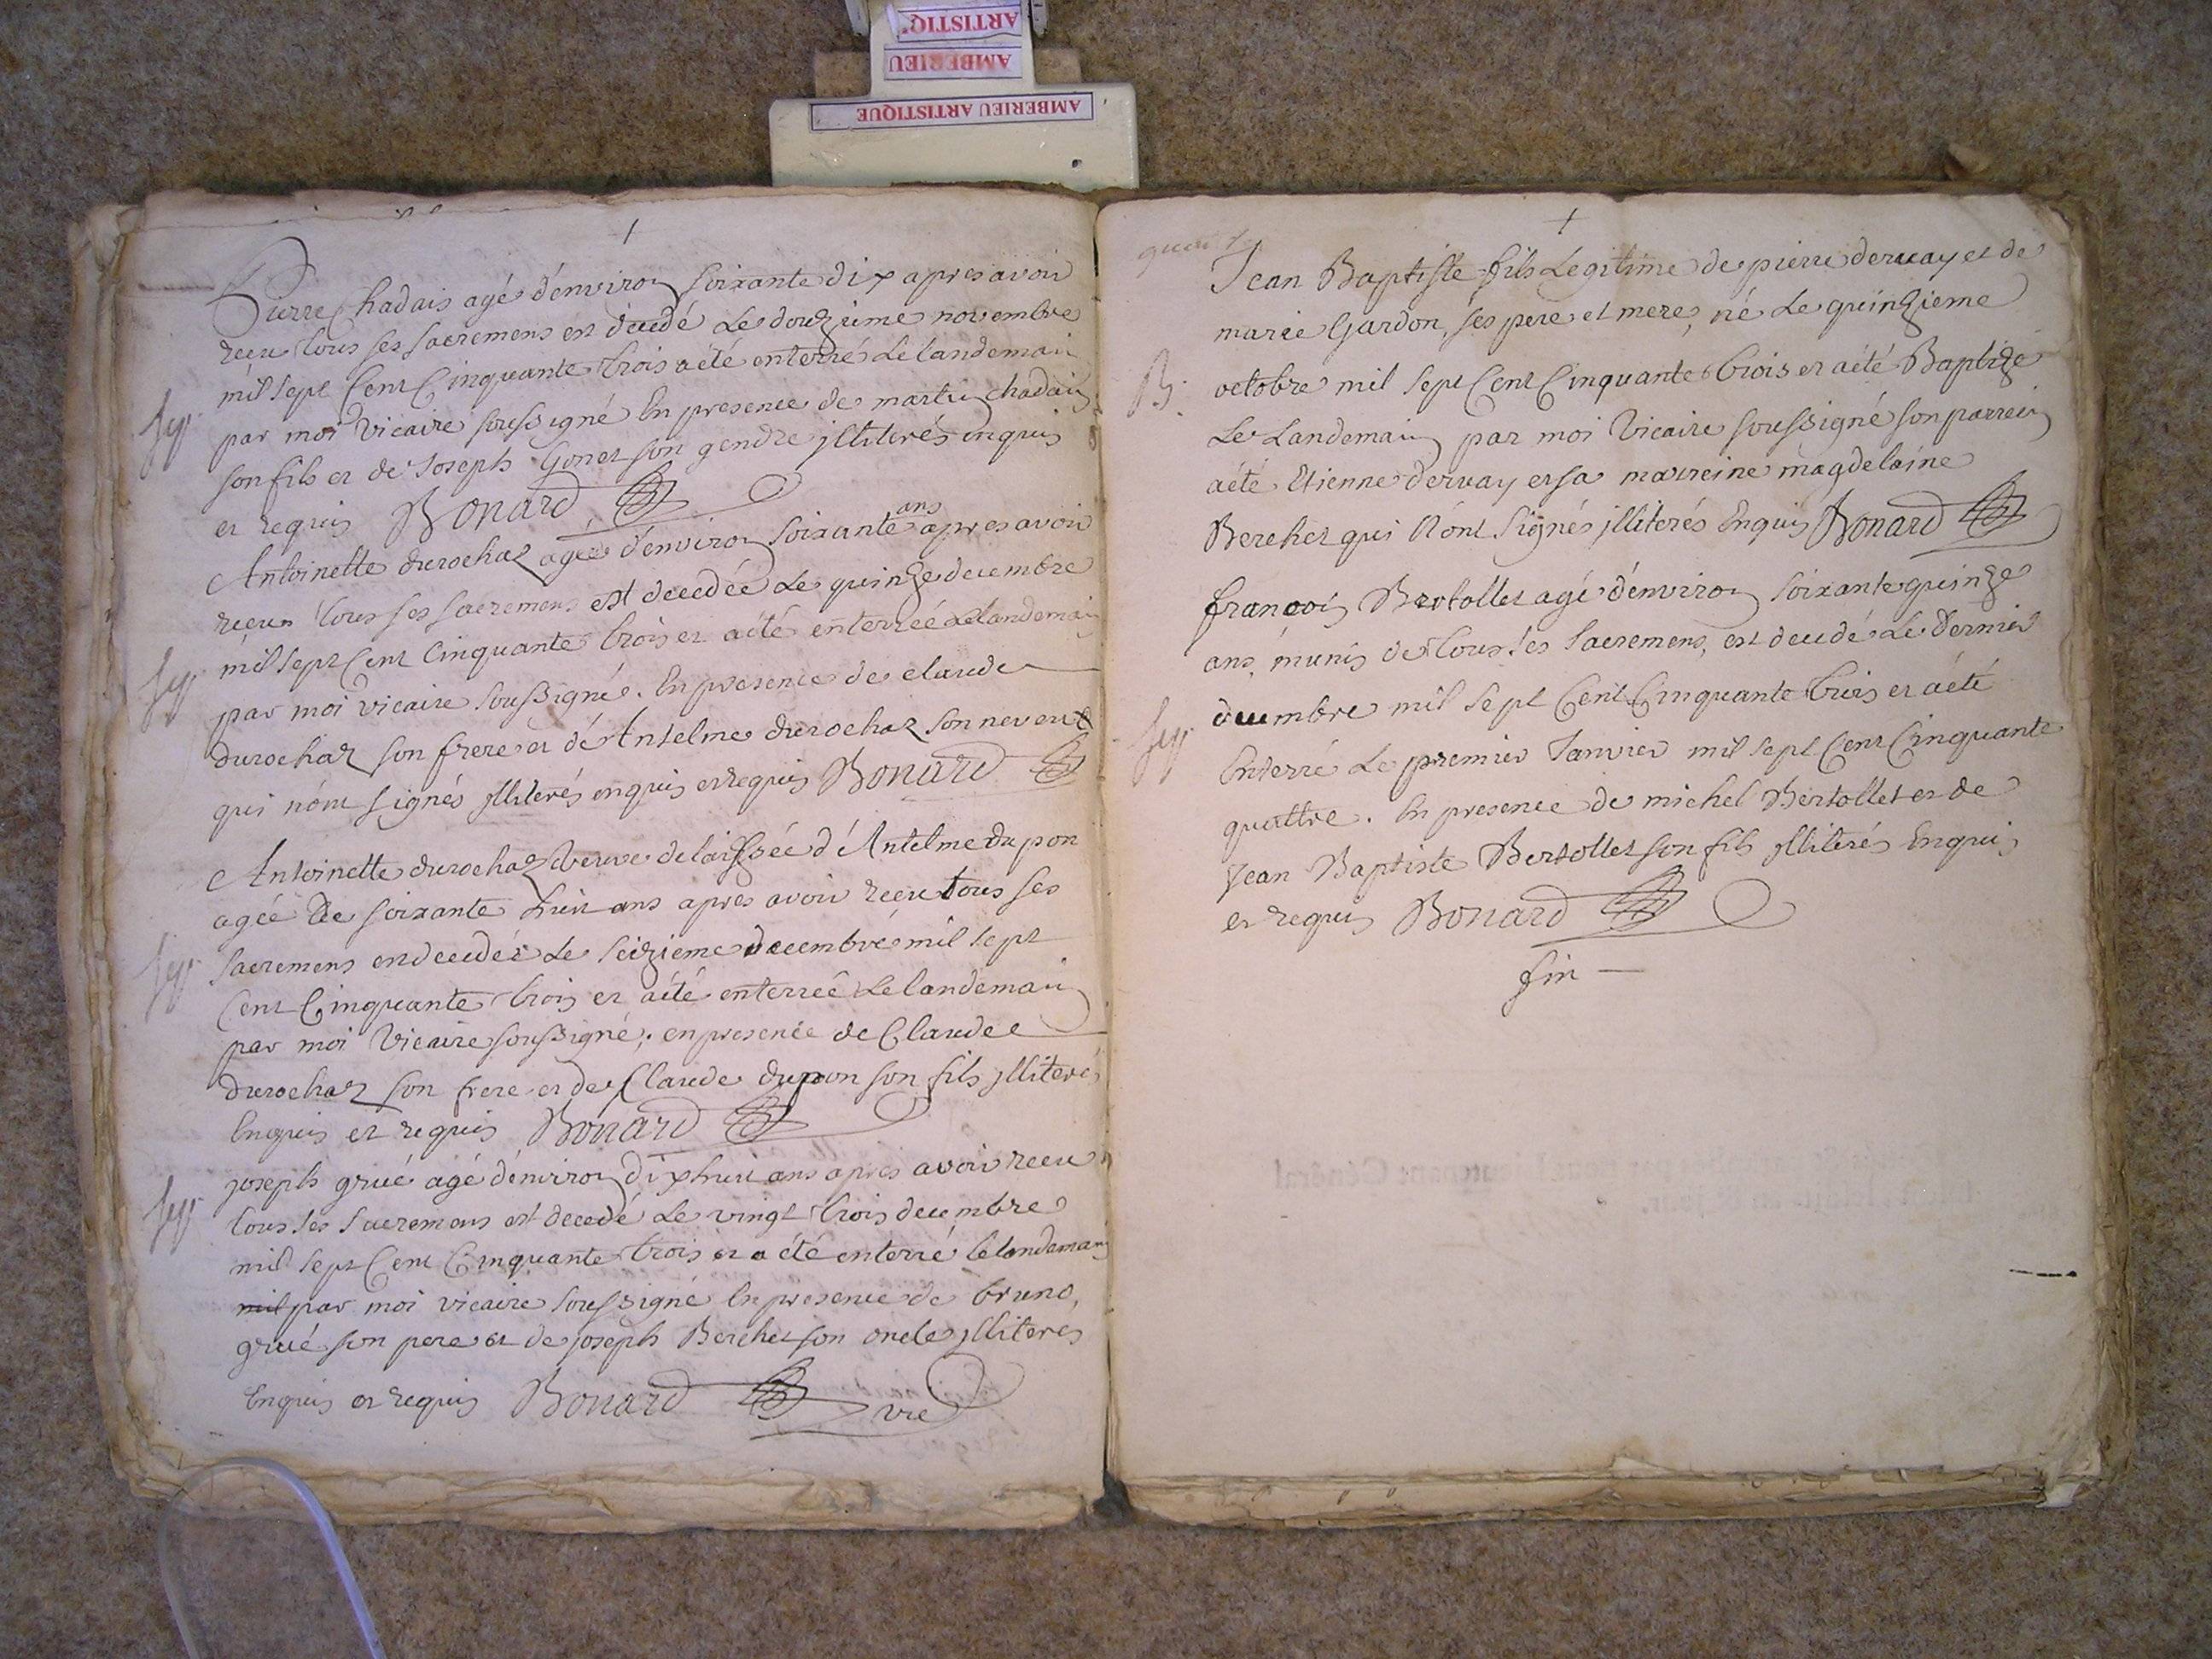 ARTISTIQ
AMBERIEU
AMBERIEU ARTISTIQUE
Pierre Chadais agé d'environ soixante dix apres avoir
reçu tous ses sacremens est decedé Le douzieme novembre
mil sept Cent Cinquante trois a été enterré Le landemain
par moi Vicaire soussigné En presence de martin chadais
son fils et de Joseph Gonet son gendre jlliterés enquis
et requis Bonard
Antoinette durochaz agée d'environ soixante ans apres avoir
reçeu tous ses sacremens est decedée Le quinze decembre
mil sept Cent Cinquante trois et a été enterrée Le landemain
par moi vicaire soussigné. En presence de claude
durochaz son frere et dé Antelme durochaz son neveu
qui n'ont signés jlliterés enquis et requis Bonard
Antoinette durochaz Veuve delaissée d'Antelme Dupon
agée De soixante huit ans apres avoir reçeu tous ses
sacremens est decedée Le seizieme decembre mil sept
Cent Cinquante trois et a été enterreé Le landemain
par moi Vicaire soussigné; en presence de Claude
durochaz son frere et de Claude dupon son fils jlliterés
Enquis et requis Bonard
joseph grué agé d'environ dix huit ans apres avoir reçeu
tous ses sacremens est decedé Le vingt trois decembre
mil sept Cent Cinquante trois et a été enterré le landemain
mil par moi vicaire soussigné En presence de bruno,
grué son pere et de joseph Berchet son oncle jlliteres
Enquis et requis Bonard vre
Jean Baptiste fils Legitime de pierre deruay et de
marie Gardon, ses pere et mere, né Le quinzieme
B.
octobre mil sept Cent Cinquante trois et a été Baptizé
Le Landemain par moi Vicaire soussigné son parrein
a été Etienne deruay et sa marreine magdelaine
Berchet qui N'ont signés jlliterés Enquis Bonard
françois Bertollet agé d'environ soixante quinze
ans, munis de tous ses sacremens, est decedé Le dernier
decembre mil sept Cent Cinquante trois et a été
Enterré Le premier Janvier mil sept Cent Cinquante
quattre. En presence de michel Bertollet et de
Jean Baptiste Bertollet son fils jlliterés Enquis
et requis Bonard
fin